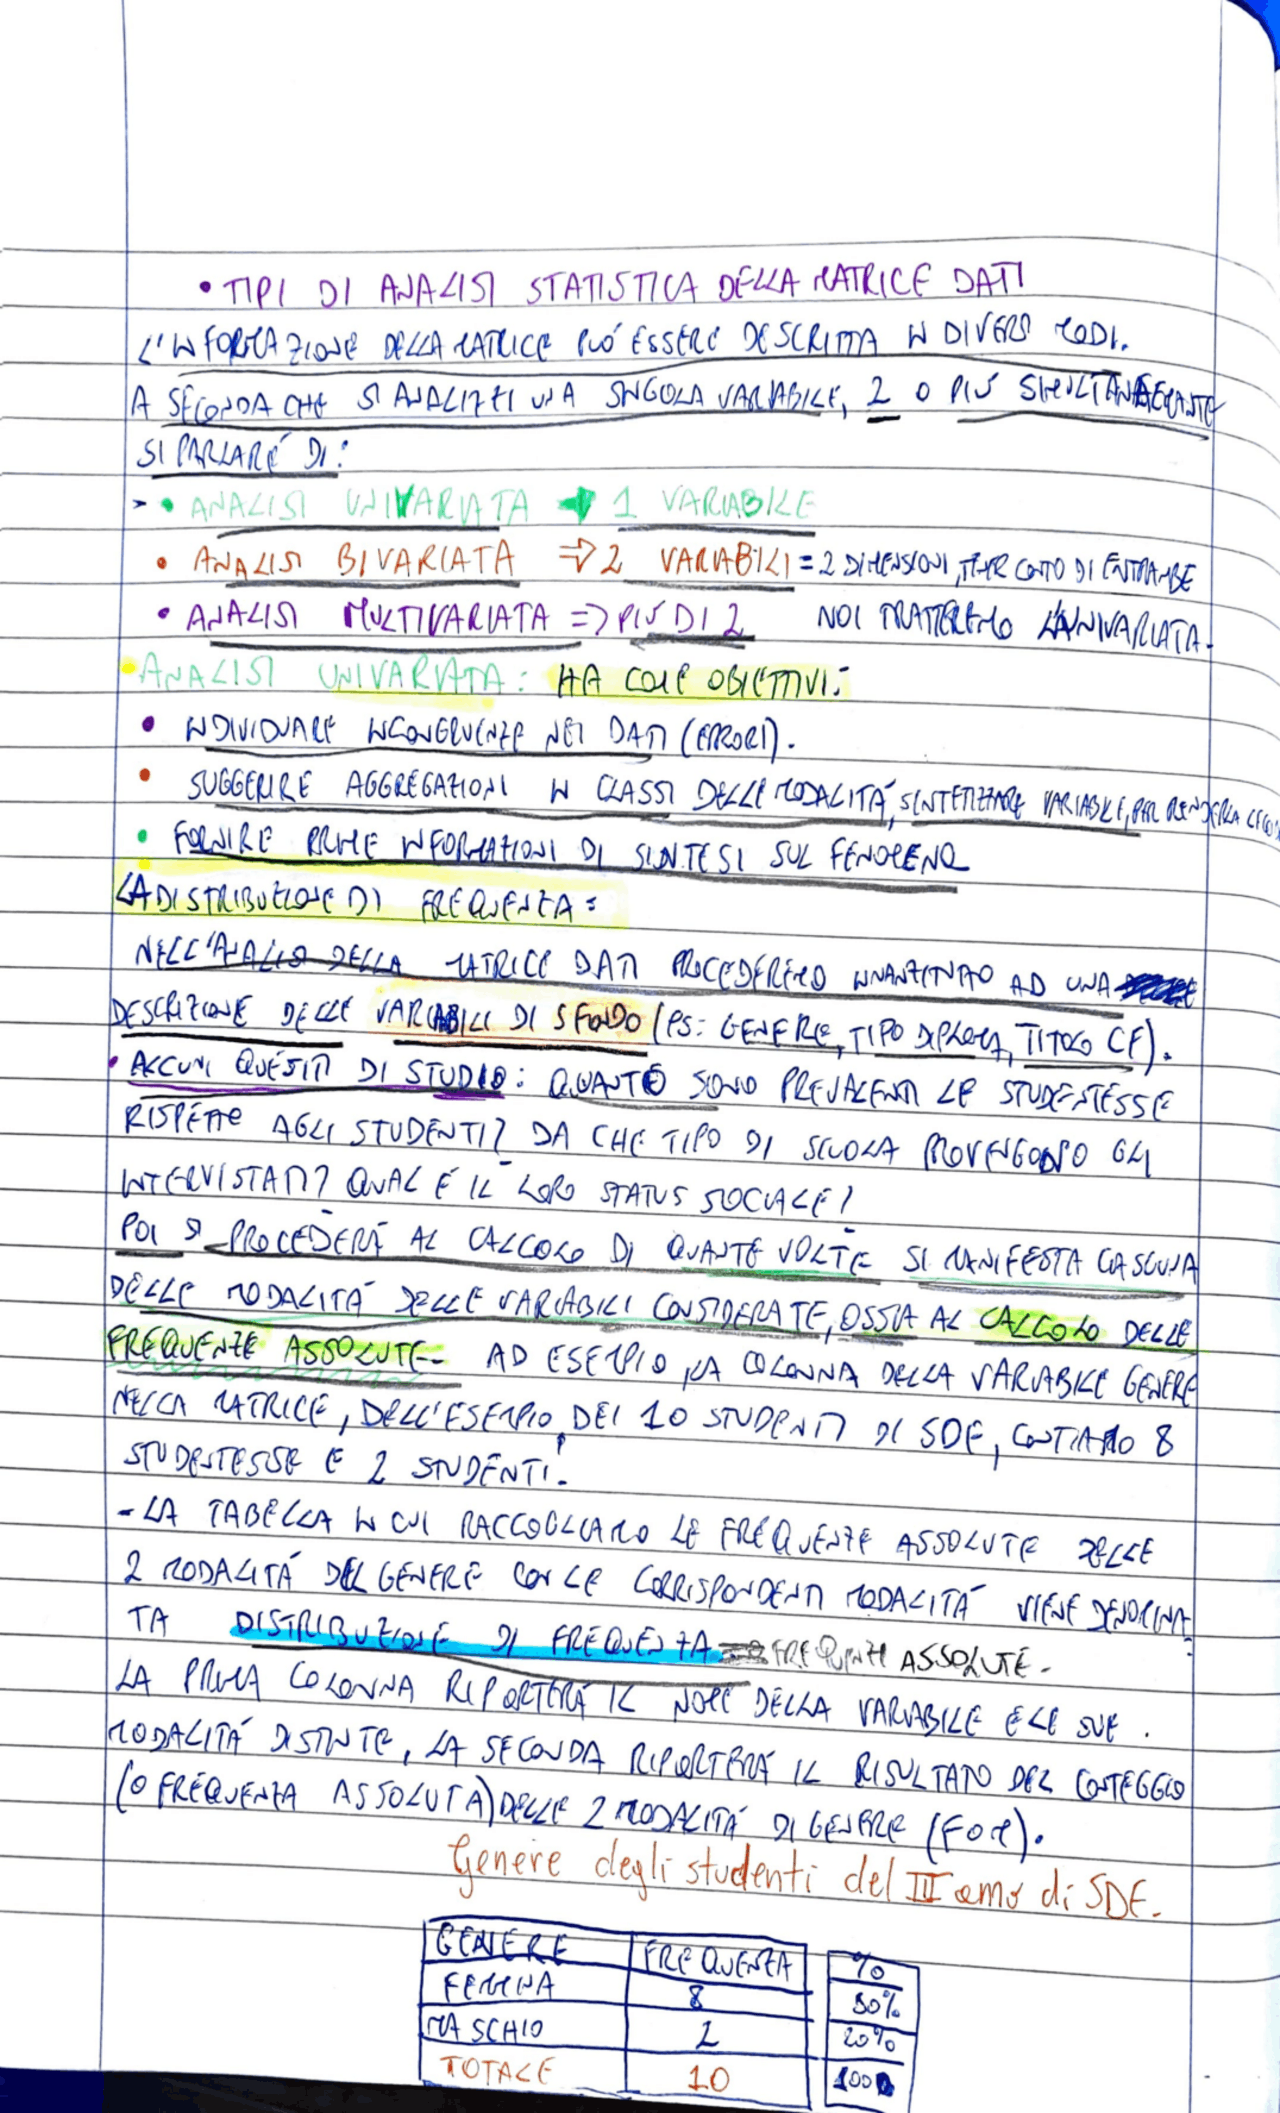 • TIPI DI ANALISI STATISTICA DELLA MATRICE DATI
L'INFORMAZIONE DELLA MATRICE PUÓ ESSERE DESCRITTA IN DIVERSI MODI.
A SECONDA CHE SI ANALIZZI UNA SINGOLA VARIABILE, 2 O PIÚ SIMULTANEAMENTE
SI PARLARÉ DI:
➤ • ANALISI UNIVARIATA → 1 VARIABILE
• ANALISI BIVARIATA ⇒ 2 VARIABILI = 2 DIMENSIONI, TENER CONTO DI ENTRAMBE
• ANALISI MULTIVARIATA => PIÚ DI 2 NOI TRATTEREMO L'UNIVARIATA.
• ANALISI UNIVARIATA: HA COME OBIETTIVI:
• INDIVIDUARE INCONGRUENZE NEI DATI (ERRORI).
• SUGGERIRE AGGREGAZIONI IN CLASSI DELLE MODALITÁ, SINTETIZZARE VARIABILE, PER RENDERLA
• FORNIRE PRIME INFORMAZIONI DI SINTESI SUL FENOMENO
LA DISTRIBUZIONE DI FREQUENZA:
NELL'ANALISI DELLA MATRICE DATI PROCEDEREMO INNANZITUTTO AD UNA
DESCRIZIONE DELLE VARIABILI DI SFONDO (ES: GENERE, TIPO DIPLOMA, TITOLO CF).
• ALCUNI QUESITI DI STUDIO: QUANTO SONO PREVALENTI LE STUDENTESSE
RISPETTO AGLI STUDENTI? DA CHE TIPO DI SCUOLA PROVENGONO GLI
INTERVISTATI? QUAL É IL LORO STATUS SOCIALE?
POI SI PROCEDERÁ AL CALCOLO DI QUANTE VOLTE SI MANIFESTA CIASCUNA
DELLE MODALITÁ DELLE VARIABILI CONSIDERATE, OSSIA AL CALCOLO DELLE
FREQUENZE ASSOLUTE. AD ESEMPIO, LA COLONNA DELLA VARIABILE GENERE
NELLA MATRICE, DELL'ESEMPIO DEI 10 STUDENTI DI SDE, CONTIAMO 8
STUDENTESSE E 2 STUDENTI.
- LA TABELLA IN CUI RACCOGLIAMO LE FREQUENZE ASSOLUTE DELLE
2 MODALITÁ DEL GENERE CON LE CORRISPONDENTI MODALITÁ VIENE DENOMINA
TA DISTRIBUZIONE DI FREQUENZA FREQUENZE ASSOLUTE.
LA PRIMA COLONNA RIPORTERÁ IL NOME DELLA VARIABILE E LE SUE
MODALITÁ DISTINTE, LA SECONDA RIPORTERÁ IL RISULTATO DEL CONTEGGIO
(O FREQUENZA ASSOLUTA) DELLE 2 MODALITÁ DI GENERE (F O M).
Genere degli studenti del III anno di SDE.
GENERE FREQUENZA %
FEMMINA 8 80%
MASCHIO 2 20%
TOTALE 10 100